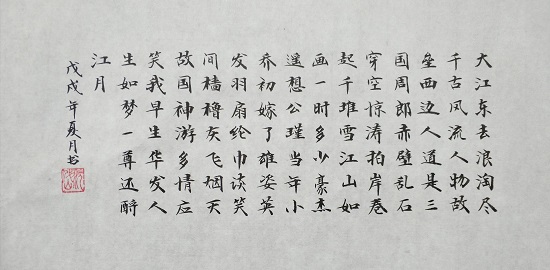 大江东去浪淘尽
千古风流人物故
垒西边人道是三
国周郎赤壁乱石
穿空惊涛拍岸卷
起千堆雪江山如
画一时多少豪杰
遥想公瑾当年小
乔初嫁了雄姿英
发羽扇纶巾谈笑
间樯橹灰飞烟灭
故国神游多情应
笑我早生华发人
生如梦一尊还酹
江月
戊戌年夏月书